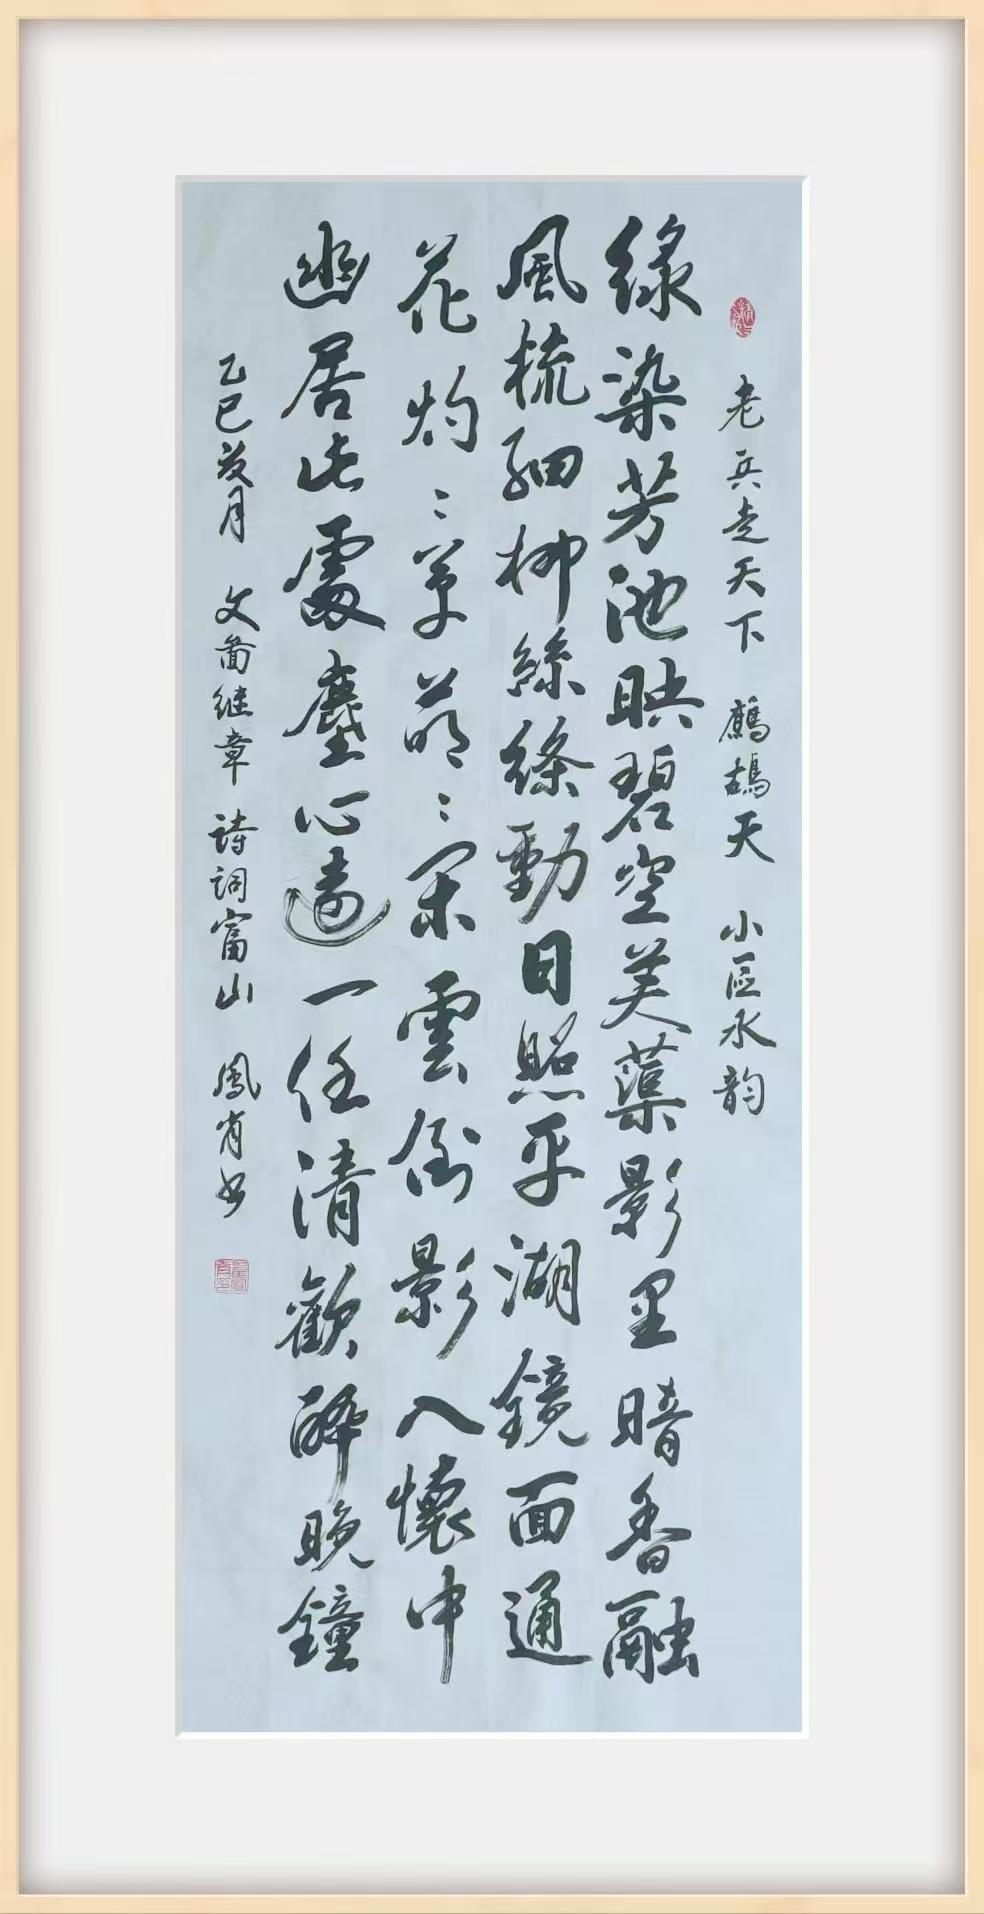 老兵走天下 鷓鴣天 小區水韵
綠染芳池映碧空芙蕖影里暗香融
風梳細柳絲絛動日照平湖鏡面通
花灼〻草萌〻閑雲倒影入懷中
幽居此處塵心遠一任清歡醉晚鐘
乙巳月 文圖继章 詩詞富山 鳳肖書